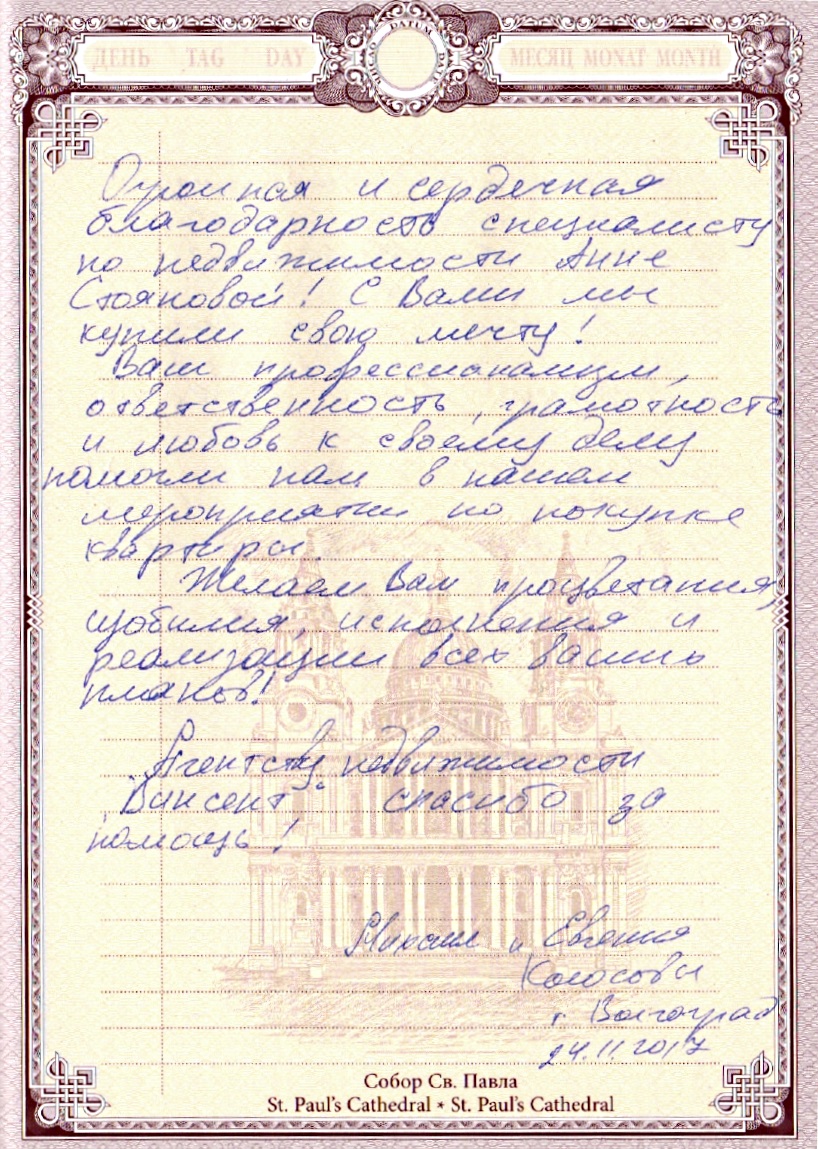 ДЕНЬ TAG DAY
DATUM
МЕСЯЦ MONAT MONTH
Огромная и сердечная
благодарность специалисту
по недвижимости Анне
Стояновой! С Вами мы
купили свою мечту!
Ваш профессионализм,
ответственность, грамотность
и любовь к своему делу
помогли нам в нашем
мероприятии по покупке
квартиры.
Желаем Вам процветания,
изобилия, исполнения и
реализации всех ваших
планов!
Агентству недвижимости
"Винсент" спасибо за
помощь!
Михаил и Евгения
Колосовы
г. Волгоград
24.11.2017
Собор Св. Павла
St. Paul's Cathedral * St. Paul's Cathedral